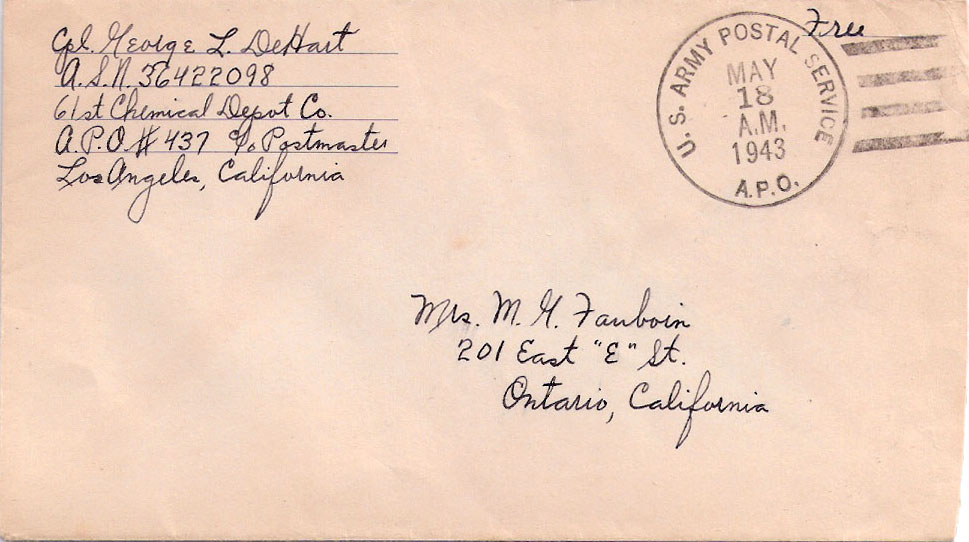 Cpl. George L. DeHart
A.S.N. 36422098
61st Chemical Depot Co.
A.P.O. # 437 c/o Postmaster
Los Angeles, California
Free
U.S. ARMY POSTAL SERVICE
MAY
18
A.M.
1943
A.P.O.
Mrs. M. G. Fauboin
201 East "E" St.
Ontario, California